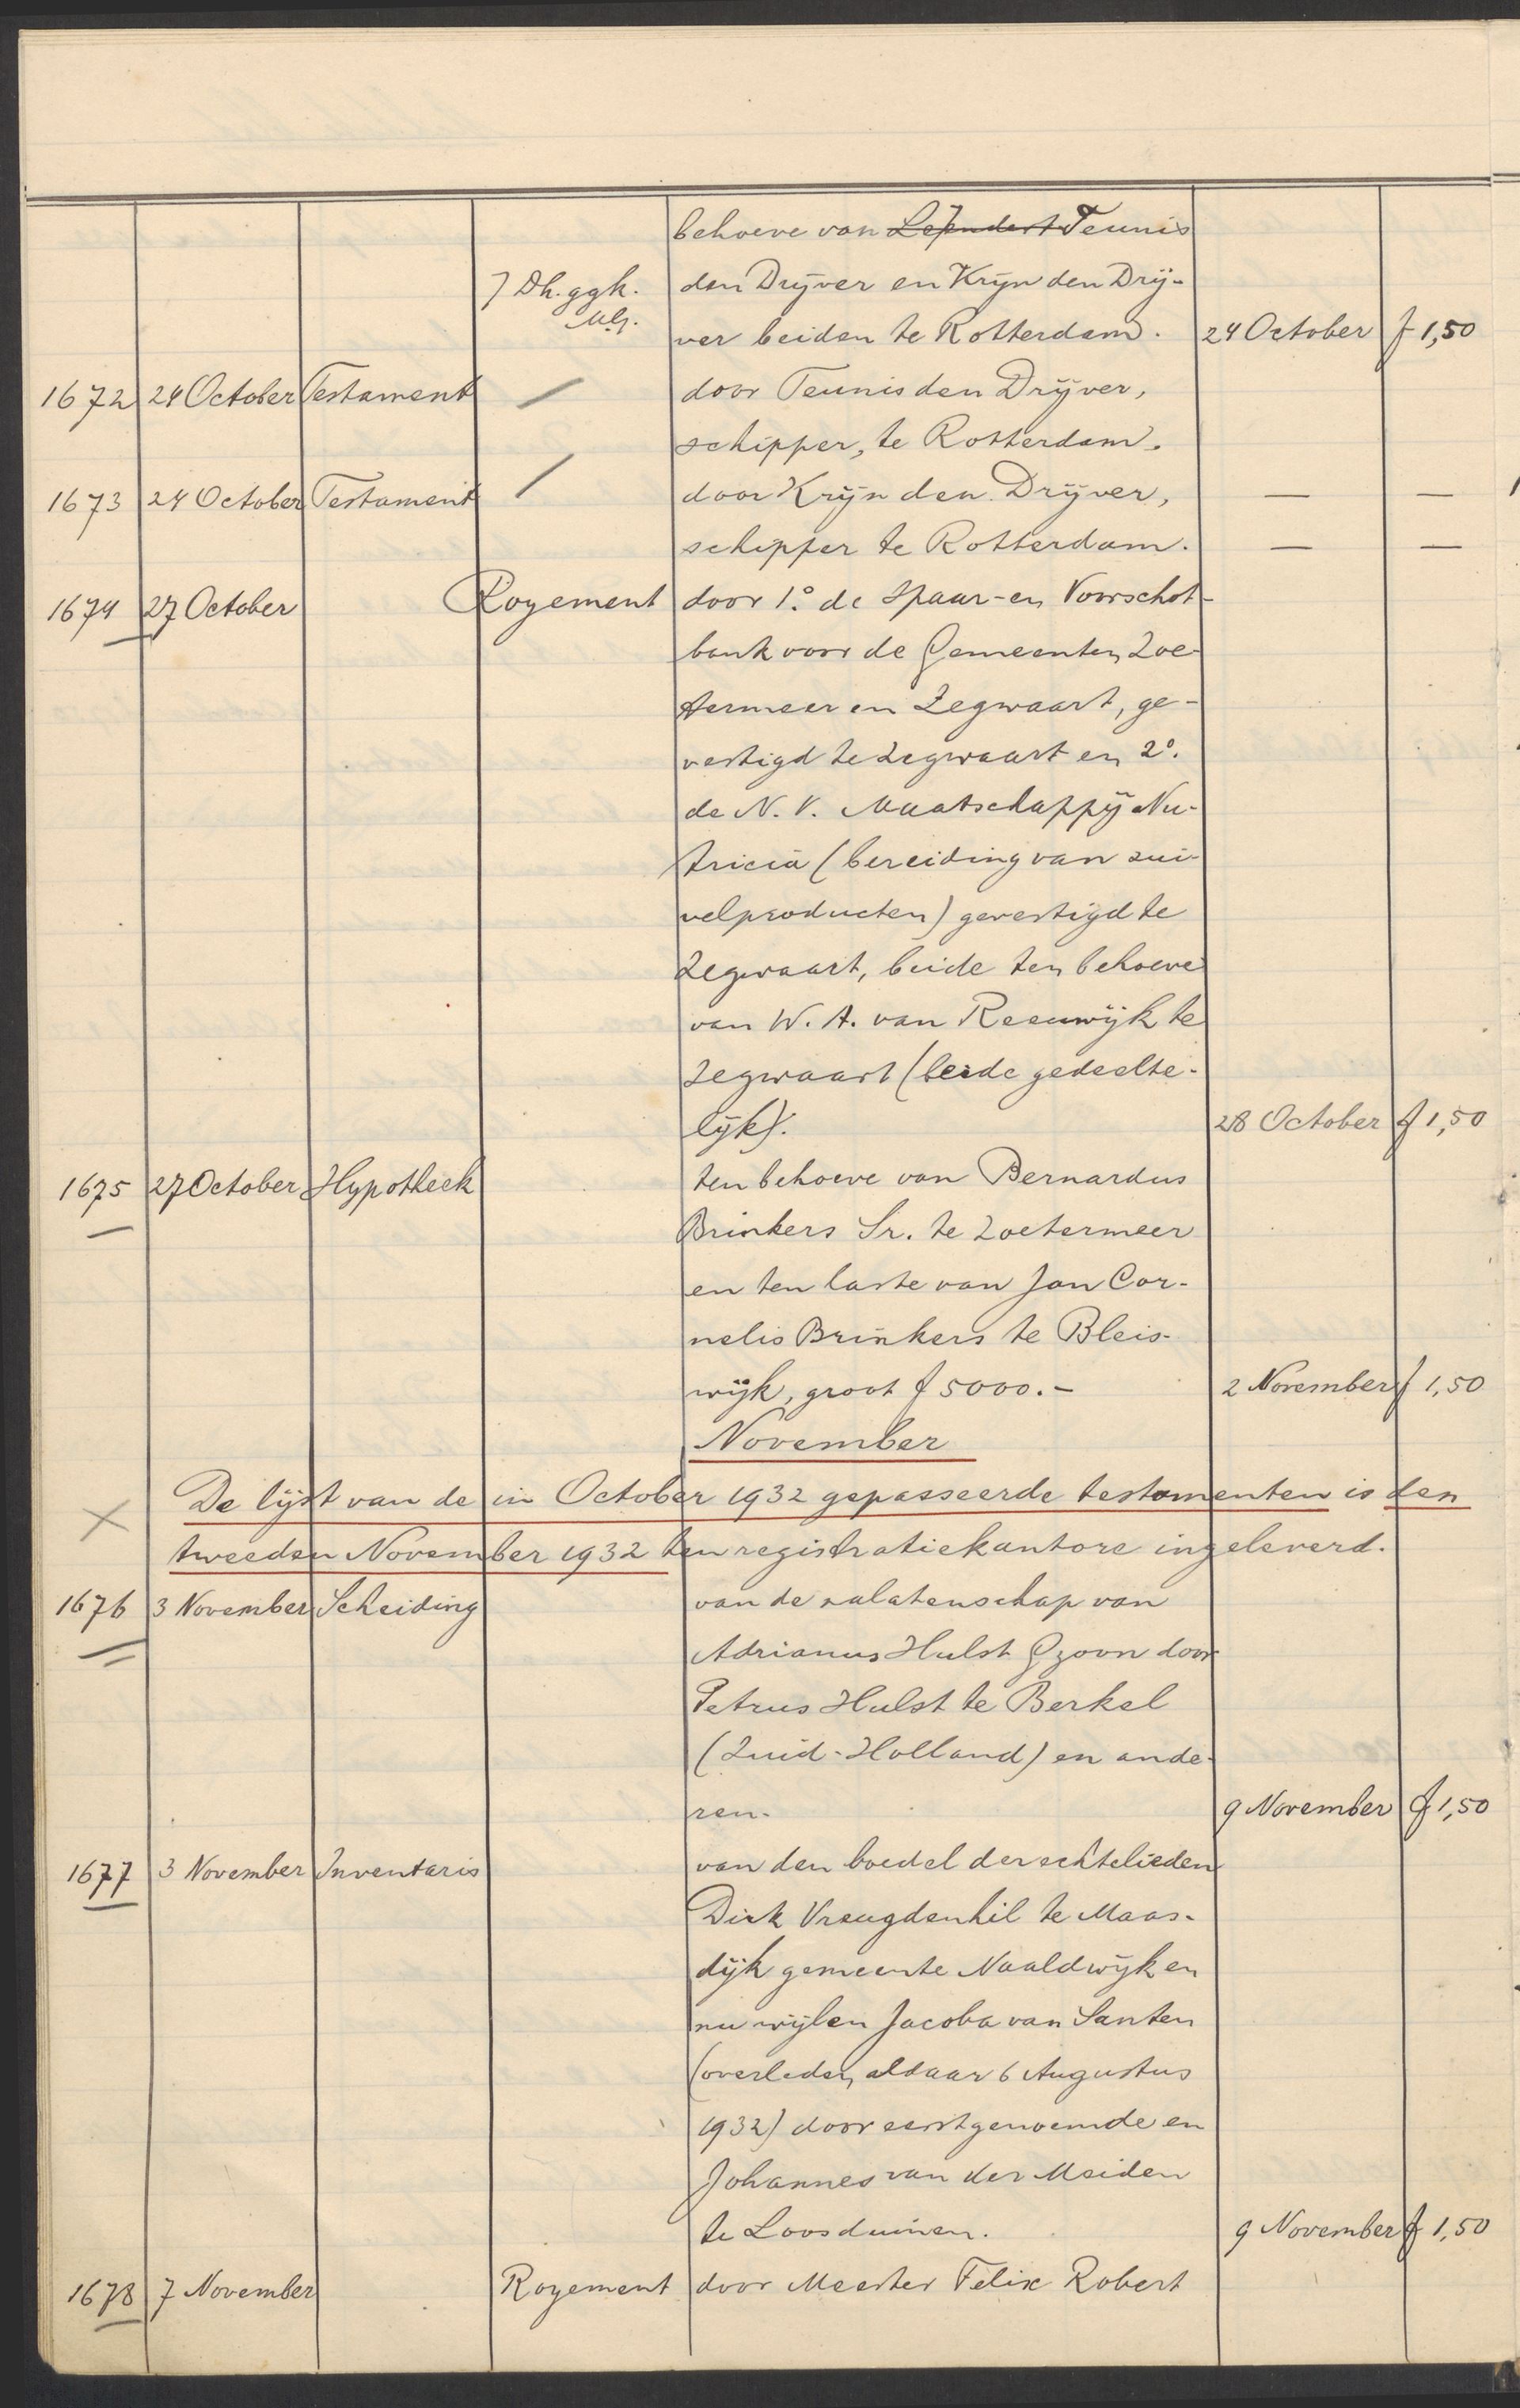 behoeve van Leendert Teunis
7 Dh. ggk. den Drijver en Krijn den Drij-
ver beiden te Rotterdam. 24 October f 1,50
1672 24 October Testament / door Teunis den Drijver,
schipper, te Rotterdam.
1673 24 October Testament / door Krijn den Drijver, — —
schipper te Rotterdam. — —
1674 27 October Royement door 1.° de Spaar- en Voorschot-
bank voor de Gemeenten Zoe-
termeer en Zegwaart, ge-
vestigd te Zegwaart en 2°.
de N.V. Maatschappij Nu-
tricia (bereiding van zui-
velproducten) gevestigd te
Zegwaart, beide ten behoeve
van W. A. van Reeuwijk te
Zegwaart (beide gedeelte-
lijk). 28 October f 1,50
1675 27 October Hypotheek ten behoeve van Bernardus
Brinkers Sr. te Zoetermeer
en ten laste van Jan Cor-
nelis Brinkers te Bleis-
wijk, groot f 5000.- 2 November f 1,50
November
De lijst van de in October 1932 gepasseerde testamenten is den
tweeden November 1932 ten registratiekantore ingeleverd.
1676 3 November Scheiding van de nalatenschap van
Adrianus Hulst Gzoon door
Petrus Hulst te Berkel
(Zuid-Holland) en ande-
ren. 9 November f 1,50
1677 3 November Inventaris van den boedel der echtelieden
Dirk Vreugdenhil te Maas-
dijk gemeente Naaldwijk en
nu wijlen Jacoba van Santen
(overleden aldaar 6 Augustus
1932) door eerstgenoemde en
Johannes van der Meiden
te Loosduinen. 9 November f 1,50
1678 7 November Royement door Meester Felix Robert